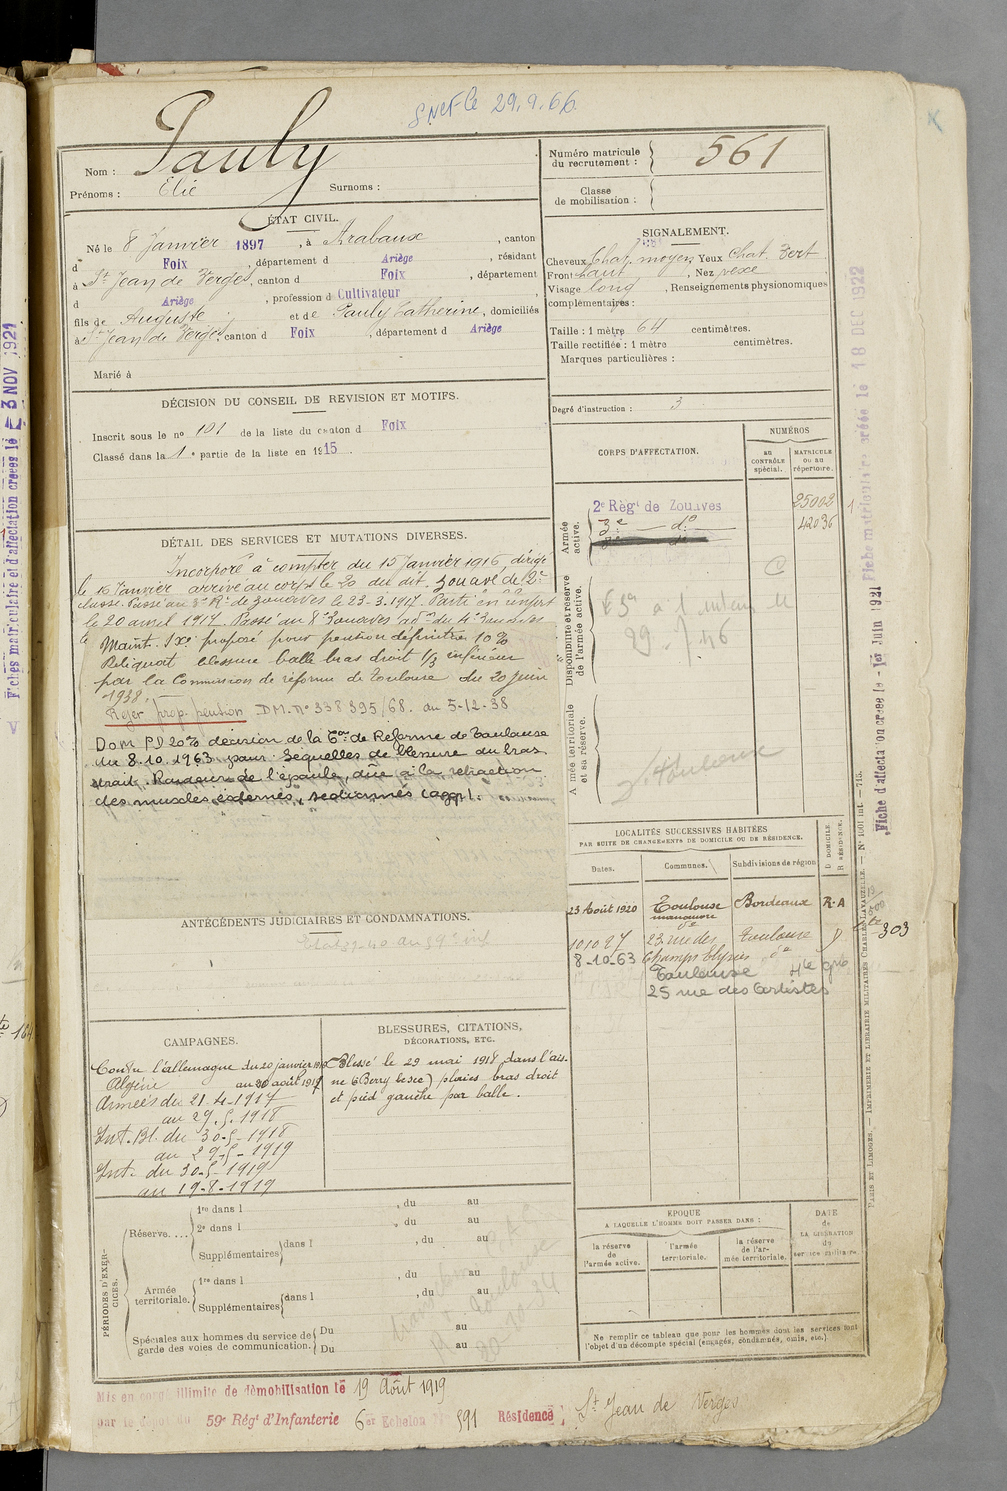 29.9.66
Pauly
Nom :
Prénoms : Elie Surnoms :
Numéro matricule du recrutement : 561
Classe de mobilisation :
ÉTAT CIVIL.
Né le 8 Janvier 1897, à Arabaux, canton
d Foix, département d Ariège, résidant
à St Jean de Verges, canton d Foix, département
d Ariège, profession d Cultivateur
fils de Auguste et de Pauly Catherine, domiciliés
à St Jean de Verges, canton d Foix, département d Ariège
Marié à
SIGNALEMENT.
Cheveux Chat. moyen Yeux Chat. Vert
Front haut, Nez vexe
Visage long, Renseignements physionomiques
complémentaires :
Taille : 1 mètre 64 centimètres.
Taille rectifiée : 1 mètre centimètres.
Marques particulières :
Degré d'instruction : 3
DÉCISION DU CONSEIL DE REVISION ET MOTIFS.
Inscrit sous le no 101 de la liste du canton d Foix
Classé dans la 1e partie de la liste en 1915.
CORPS D'AFFECTATION.
NUMÉROS
AU CONTRÔLE spécial.
MATRICULE ou au répertoire.
Armée active.
2e Régt de Zouaves 25002
3e do 42036
Disponibilité et réserve de l'armée active.
Armée territoriale et sa réserve.
Toulouse
DÉTAIL DES SERVICES ET MUTATIONS DIVERSES.
Incorporé à compter du 15 Janvier 1916, dirigé
le 16 Janvier arrivé au corps le 20 du dit. Zouave de 2e
classe. Passé au 3e Rt de Zouaves le 23-3-1917. Parti en renfort
le 20 avril 1917. Passé au 8e Zouaves
Maint. Sxe proposé pour pention définitive 10%
Reliquat blessure balle bras droit 1/3 inférieur
par la Commission de réforme de Toulouse du 20 juin
1938.
Rejet prop. pention DM. No 338395/68. du 5-12-38
Dom PD 20% décision de la Con de Réforme de Toulouse
du 8.10.1963 pour : Séquelles de blessure du bras
droit. Raideur de l'épaule, dûe à la rétraction
des muscles externes, sectionnés (agg).
ANTÉCÉDENTS JUDICIAIRES ET CONDAMNATIONS.
LOCALITÉS SUCCESSIVES HABITÉES
PAR SUITE DE CHANGEMENTS DE DOMICILE OU DE RÉSIDENCE.
Dates. Communes. Subdivisions de région D DOMICILE. R RÉSIDENCE.
23 Août 1920 Toulouse Bordeaux R.A
manœuvre
10 10 27 23 rue des Toulouse D
8-10-63 Champs Elysées do
Toulouse Hte Gne
25 rue des Artistes
303
CAMPAGNES.
Contre l'allemagne du 20 janvier 1916
Algérie au 20 avril 1917
Armées du 21-4-1917
au 29.5.1918
Int. Bl. du 30-5-1918
au 29-5-1919
Int. du 30-5-1919
au 19-8-1919
BLESSURES, CITATIONS,
DÉCORATIONS, ETC.
Blessé le 29 mai 1918 dans l'ais-
ne (Berry le sec) plaies bras droit
et pied gauche par balle.
PÉRIODES D'EXERCICES.
Réserve.... 1re dans l , du au
2e dans l , du au
Supplémentaires dans l , du au
Armée territoriale. 1re dans l , du au
Supplémentaires dans l , du au
Spéciales aux hommes du service de garde des voies de communication. Du au
Du au
ÉPOQUE
A LAQUELLE L'HOMME DOIT PASSER DANS :
la réserve de l'armée active.
l'armée territoriale.
la réserve de l'armée territoriale.
DATE de LA LIBÉRATION du service militaire.
Ne remplir ce tableau que pour les hommes dont les services font
l'objet d'un décompte spécial (engagés, condamnés, omis, etc.)
Mis en congé illimité de démobilisation le 19 Août 1919
par le dépôt du 59e Régt d'Infanterie 6er Echelon No 591 Résidence : St Jean de Verges
Fiche matriculaire créée le 18 DEC 1922
Fiche d'affectation créée le 1er Juin 1921
PARIS ET LIMOGES. — IMPRIMERIE ET LIBRAIRIE MILITAIRES CHARLES-LAVAUZELLE. — No 1001 int. — 715.
Fiches matriculaire et d'affectation créées le 3 NOV 1921
164